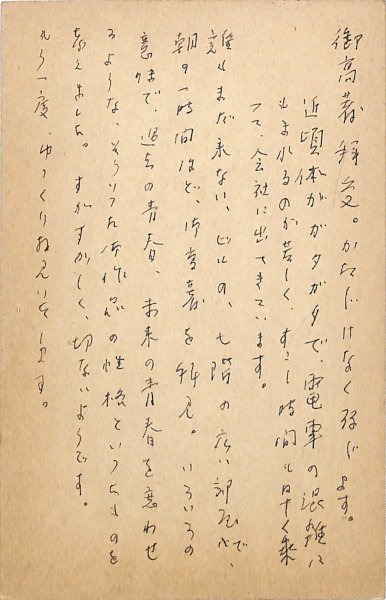 御高著拝受。かたじけなく存じます。
近頃体がガタガタで、電車の混雑に
もまれるのが苦しく、すこし時間も早く乗
って、会社に出てきています。
誰もまだ来ない、ビルの、七階の広い部屋で、
朝の一時間ほど、御高著を拝見。いろいろの
意味で、過去の青春、未来の青春を思わせ
るような、そういう御作品の性格というものを
考えました。すがすがしく、切ないようです。
もう一度、ゆっくり拝見いたします。